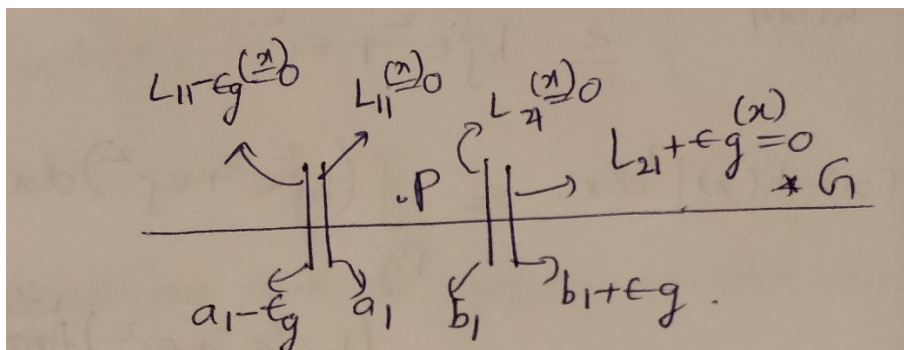 L₁₁-ϵg(x)=0 L₁₁(x)=0 L₂₁(x)=0 L₂₁+ϵg(x)=0
.P * G
a₁-ϵg a₁ b₁ b₁+ϵg.